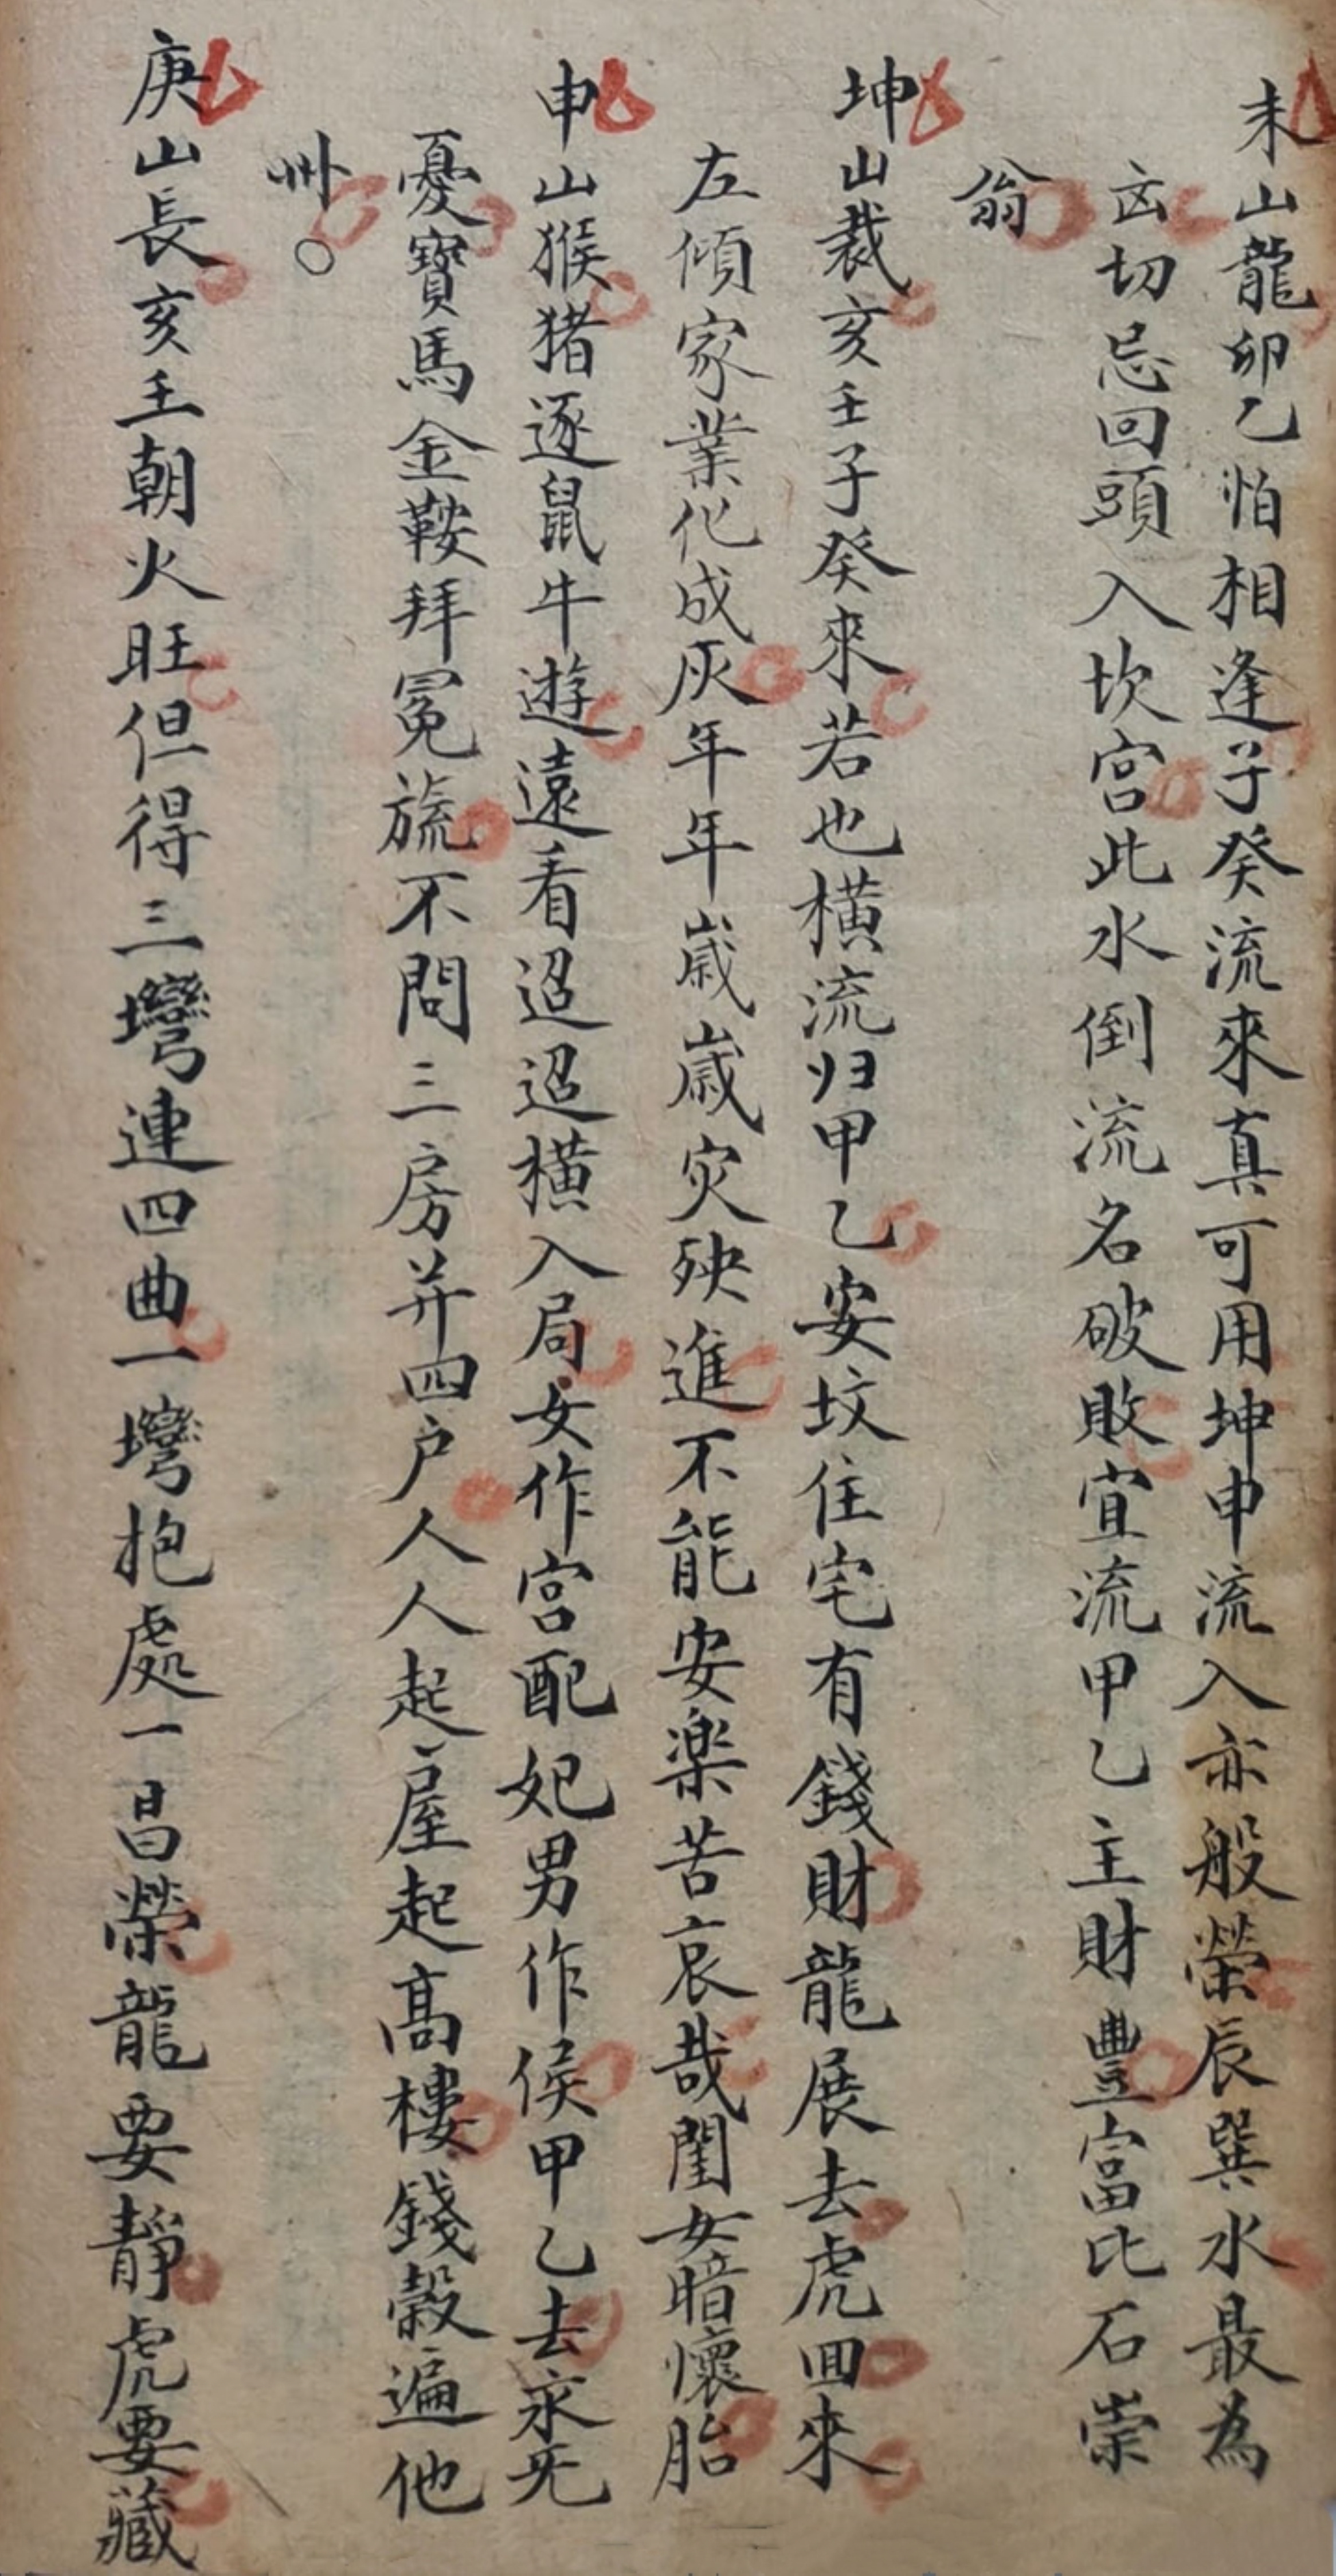 未山龍卯乙怕相逢子癸流來真可用坤申流入亦般榮辰巽水最為
凶切忌回頭入坎宮此水倒流名破敗宜流甲乙主財豐富比石崇
翁
坤山裁亥壬子癸來若也橫流归甲乙安坟住宅有錢財龍展去虎回來
左傾家業化成灰年年歲歲灾殃進不能安楽苦哀哉閨女暗懷胎
申山猴猪逐鼠牛遊遠看迢迢橫入局女作宮配妃男作侯甲乙去永无
憂寶馬金鞍拜冕旒不問三房并四户人人起屋起高樓錢穀遍他
州〇
庚山長亥壬朝火旺但得三灣連四曲一灣抱處一昌榮龍要靜虎要藏